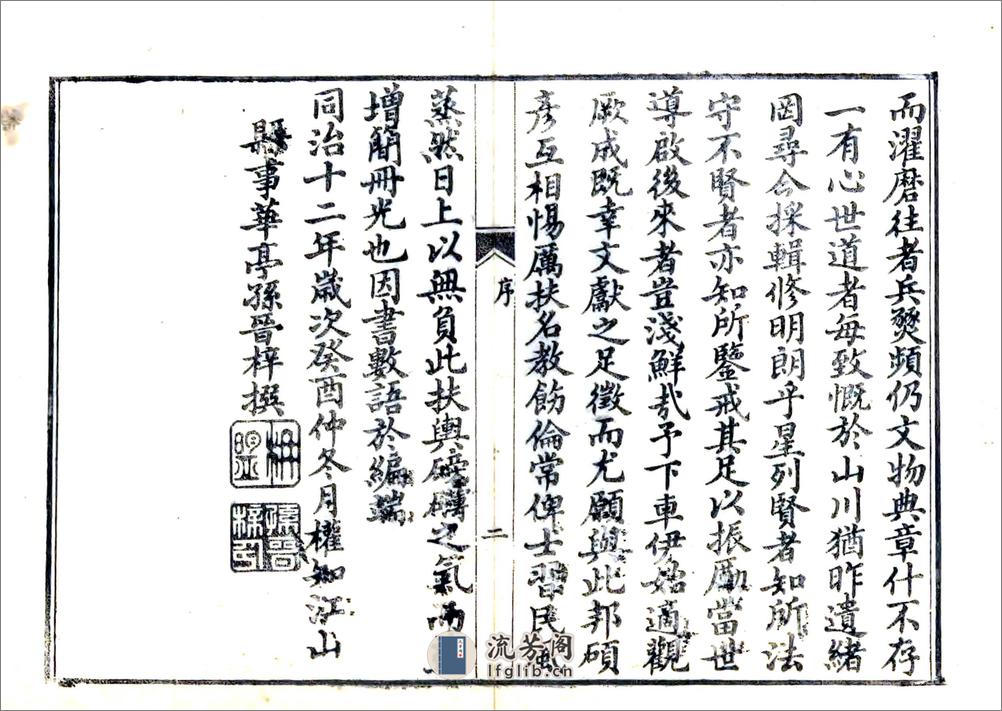 而濯磨往者兵燹頻仍文物典章什不存
一有心世道者每致慨於山川猶昨遺緒
罔尋今採輯修明朗乎星列賢者知所法
守不賢者亦知所鑒戒其足以振勵當世
導啟後來者豈淺鮮哉予下車伊始適觀
厥成既幸文獻之足徵而尤願與此邦碩
彥互相惕厲扶名教飭倫常俾士習民風
蒸然日上以無負此扶輿磅礴之氣而
增簡冊光也因書數語於編端
同治十二年歲次癸酉仲冬月權知江山
縣事華亭孫晉梓撰
孫晉梓印
序
二
流芳閣
lfglib.cn